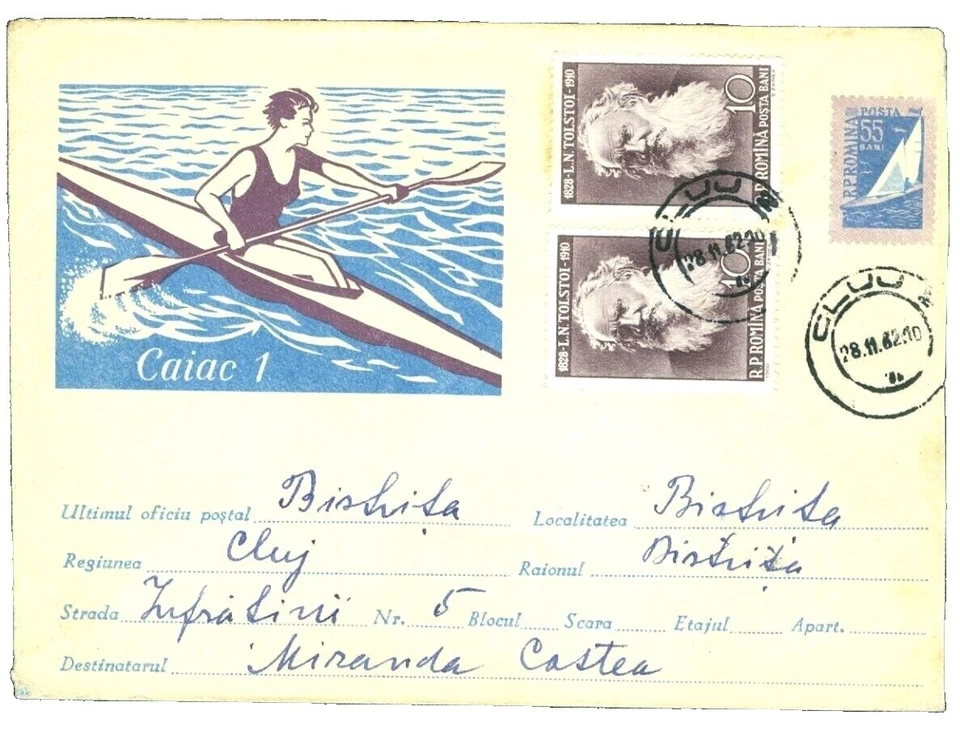 Caiac 1
1828-L.N.TOLSTOI-1910
10
R.P.ROMÎNĂ POSTA BANI
1828-L.N.TOLSTOI-1910
10
R.P.ROMÎNĂ POSTA BANI
R.P.ROMINA
POSTA
55
BANI
CLUJ
28.11.62.10
CLUJ
28.11.62.10
Ultimul oficiu poștal Bistrița Localitatea Bistrița
Regiunea Cluj Raionul Bistrița
Strada Infrătirii Nr. 5 Blocul Scara Etajul Apart.
Destinatarul Miranda Costea